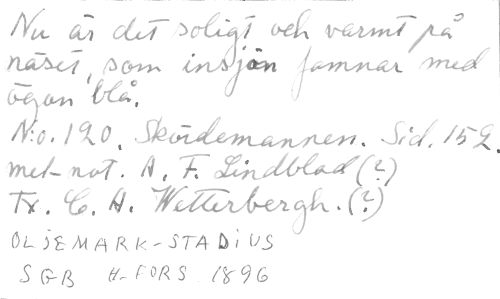 Nu är det soligt och varmt på
näset, som insjön famnar med
ögon blå.
N:o. 120. Skördemannen. Sid. 152.
mel-not. A. F. Lindblad (?)
Tx. C. A. Wetterbergh. (?)
OLJEMARK-STADIUS
SGB H-FORS 1896